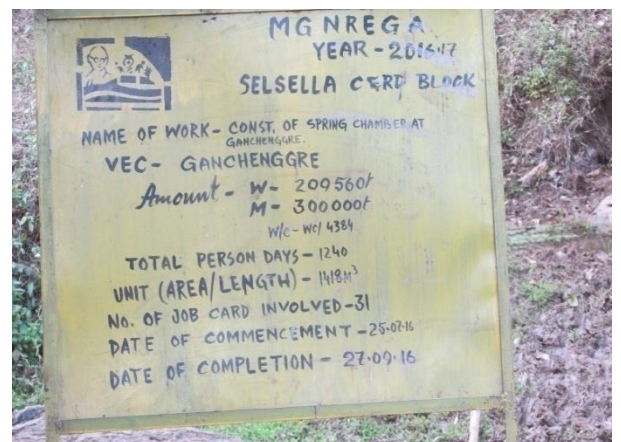 MGNREGA
YEAR - 2016-17
SELSELLA C&RD BLOCK
NAME OF WORK - CONST. OF SPRING CHAMBER AT
GANCHENGGRE.
VEC - GANCHENGGRE
Amount - W - 209560/
M - 300000/
W/c - WC/ 4384
TOTAL PERSON DAYS - 1240
UNIT (AREA/LENGTH) - 1418M³
NO. OF JOB CARD INVOLVED - 31
DATE OF COMMENCEMENT - 25.07.16
DATE OF COMPLETION - 27.09.16